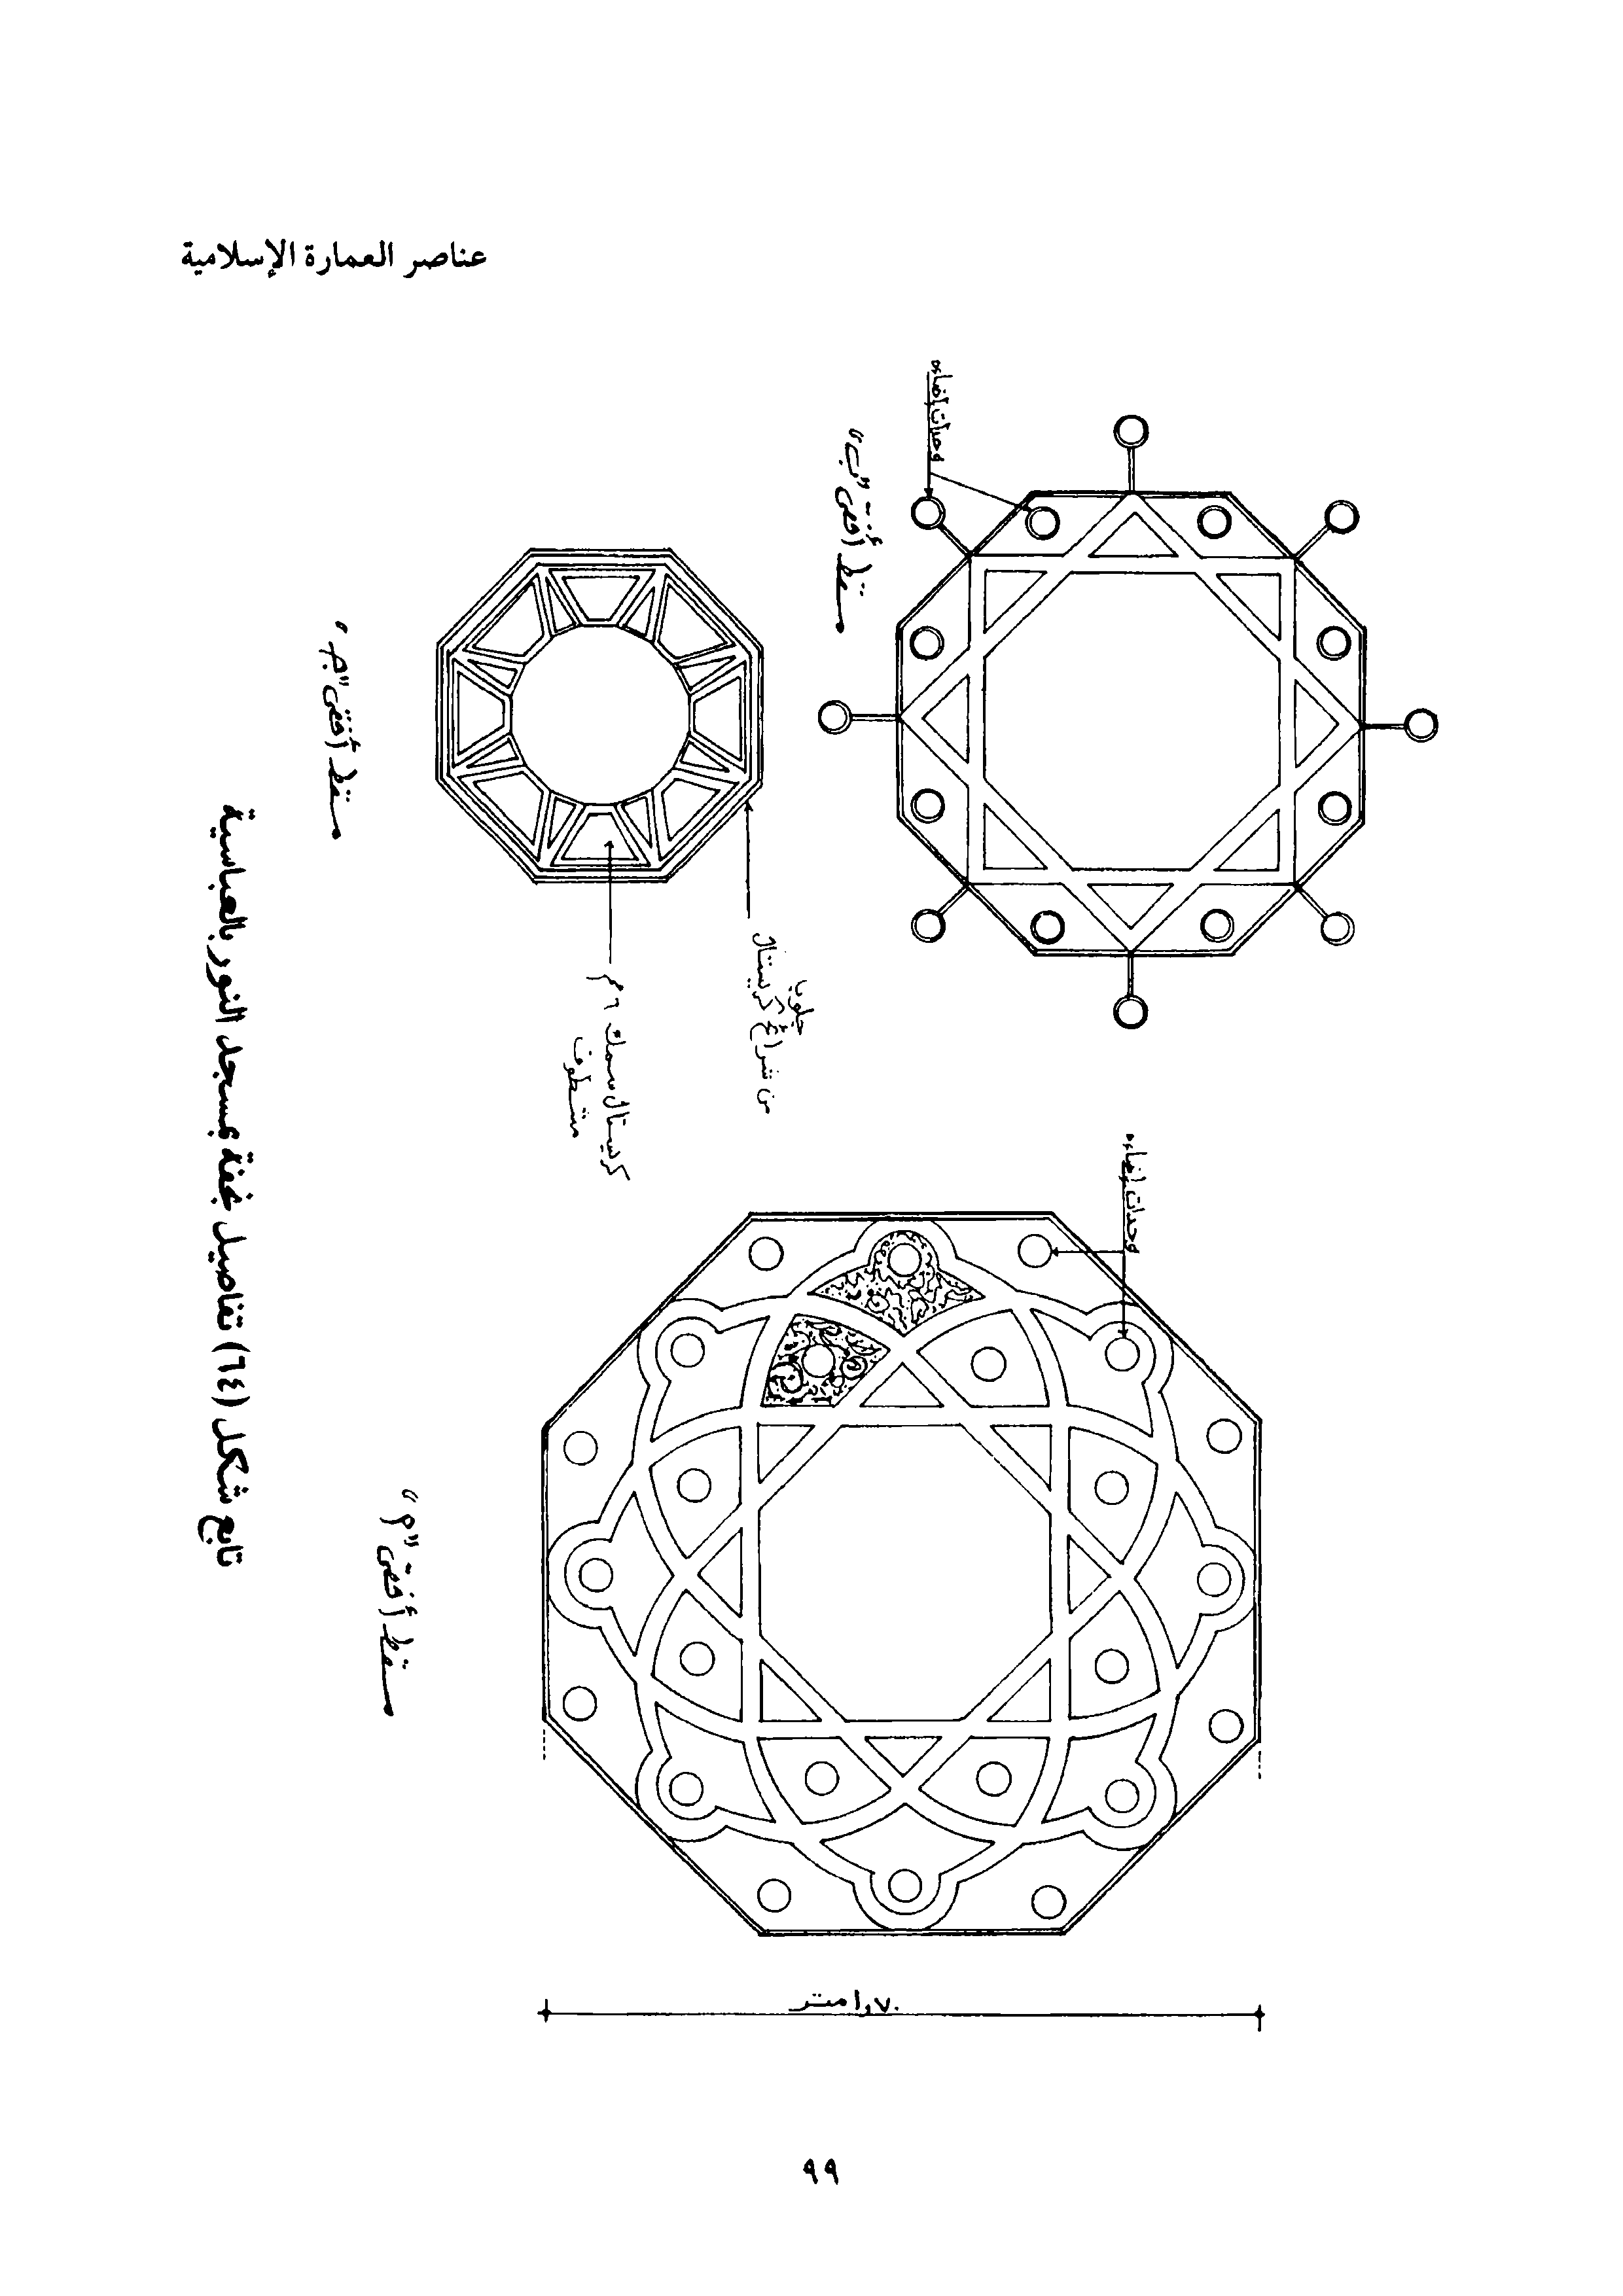 عناصر العمارة الإسلامية
وحدات إضاءه
مسقط أفقى "ب"
مسقط أفقى "جـ"
من شرائح كريستال
كريستال سمك ٦ مم
مشطوف
وحدات إضاءه
مسقط أفقى "م"
١,٧٠ متر
تابع شكل (٦٤) تفاصيل نجفة بمسجد النور بالعباسية
٩٩